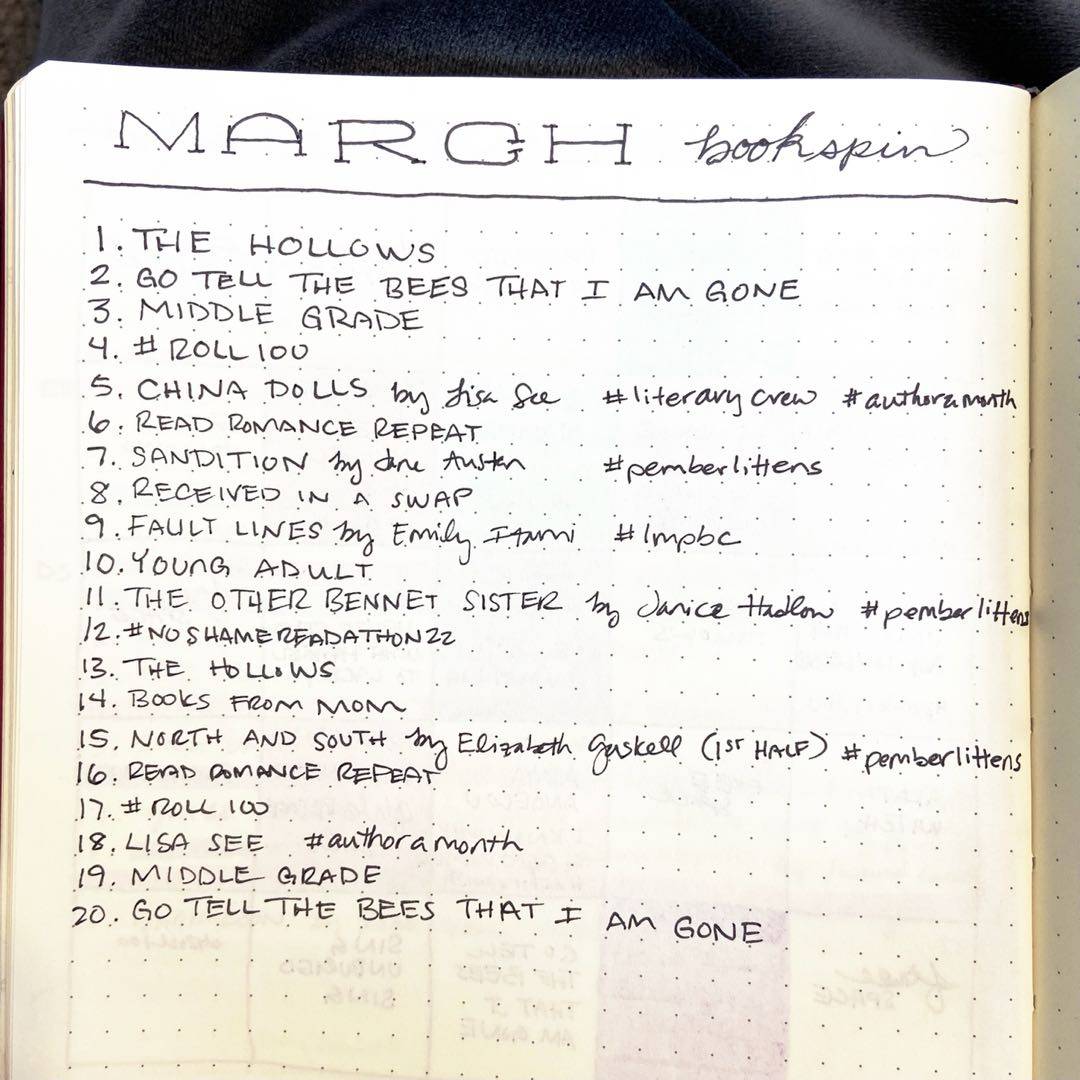 MARCH bookspin
1. THE HOLLOWS
2. GO TELL THE BEES THAT I AM GONE
3. MIDDLE GRADE
4. # ROLL 100
5. CHINA DOLLS by Lisa See #literarycrew #authoramonth
6. READ ROMANCE REPEAT
7. SANDITION by Jane Austen #pemberlittens
8. RECEIVED IN A SWAP
9. FAULT LINES by Emily Itami #lmpbc
10. YOUNG ADULT
11. THE OTHER BENNET SISTER by Janice Hadlow #pemberlittens
12. #NOSHAMEREADATHON22
13. THE HOLLOWS
14. BOOKS FROM MOM
15. NORTH AND SOUTH by Elizabeth Gaskell (1ST HALF) #pemberlittens
16. READ ROMANCE REPEAT
17. # ROLL 100
18. LISA SEE #authoramonth
19. MIDDLE GRADE
20. GO TELL THE BEES THAT I AM GONE